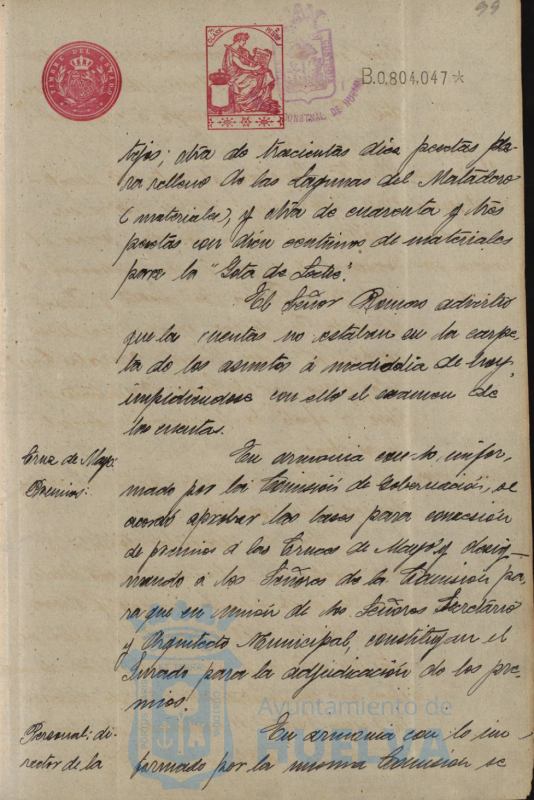 99
TIMBRE DEL ESTADO
B.0.804.047*
tajos; otra de trescientas diez pesetas pa-
ra relleno de las Lagunas del Matadero
(materiales), y otra de cuarenta y tres
pesetas con diez centimos de materiales
para la "Gota de Leche".
El Señor Romero advirtió
que las cuentas no estaban en la carpe-
ta de los asuntos á mediodia de hoy,
impidiendose con ello el examen de
las cuentas.
Cruz de Mayo:
Premios:
En armonia con lo infor-
mado por la Comisión de Gobernación, se
acordó aprobar las bases para concesión
de premios á las Cruces de Mayo y desig-
nando á los Señores de la Comisión pa-
ra que en unión de los Señores Secretario
y Arquitecto Municipal, constituyan el
Jurado para la adjudicación de los pre-
mios.
Personal: di-
rector de la
En armonia con lo in-
formado por la misma Comisión se
Ayuntamiento de
HUELVA